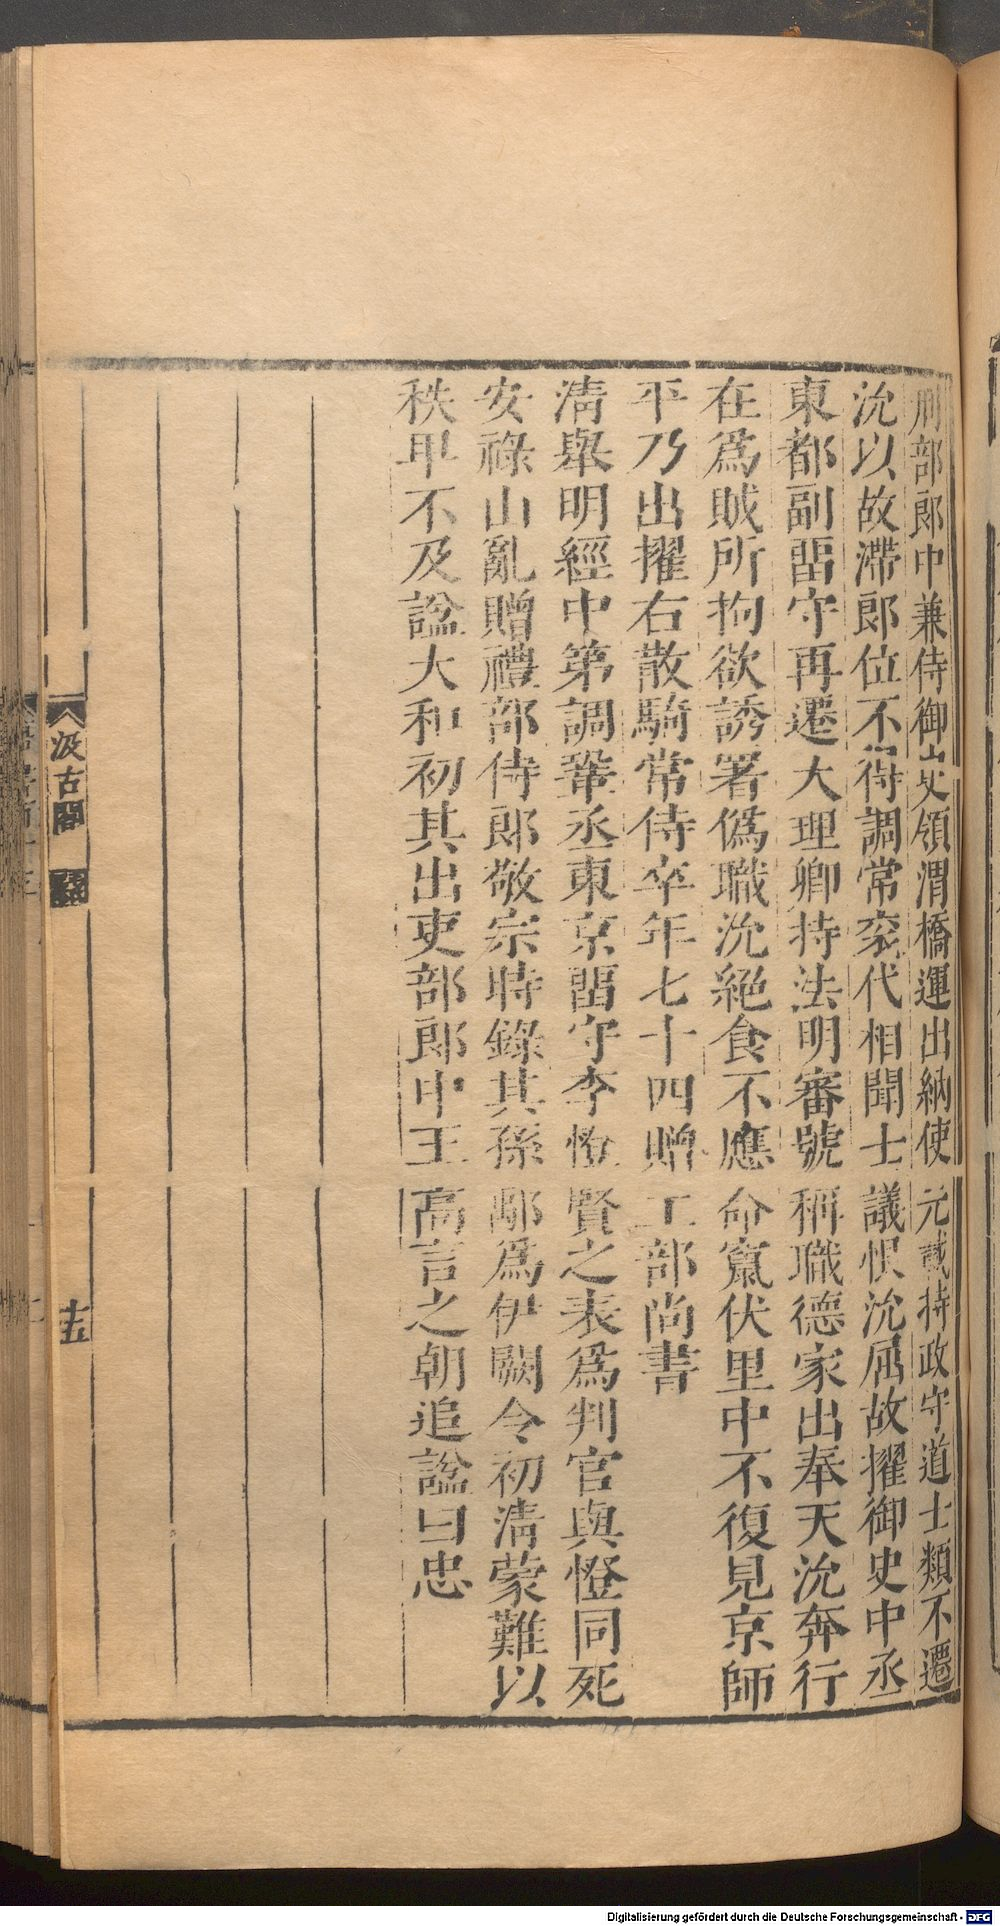 刑部郎中兼侍御史領渭橋運出納使元載持政守道士類不遷
沇以故滯郎位不得調常袞代相聞士議恨沇屈故擢御史中丞
東都副畱守再遷大理卿持法明審號稱職德家出奉天沇奔行
在爲賊所拘欲誘署僞職沇絕食不應命竄伏里中不復見京師
平乃出擢右散騎常侍卒年七十四贈工部尚書
淸舉明經中第調鞏丞東京畱守李憕賢之表爲判官與憕同死
安祿山亂贈禮部侍郎敬宗時錄其孫鄢爲伊闕令初淸蒙難以
秩卑不及諡大和初其出吏部郎中王高言之朝追諡曰忠
汲古閣
十五
Digitalisierung gefördert durch die Deutsche Forschungsgemeinschaft - DFG